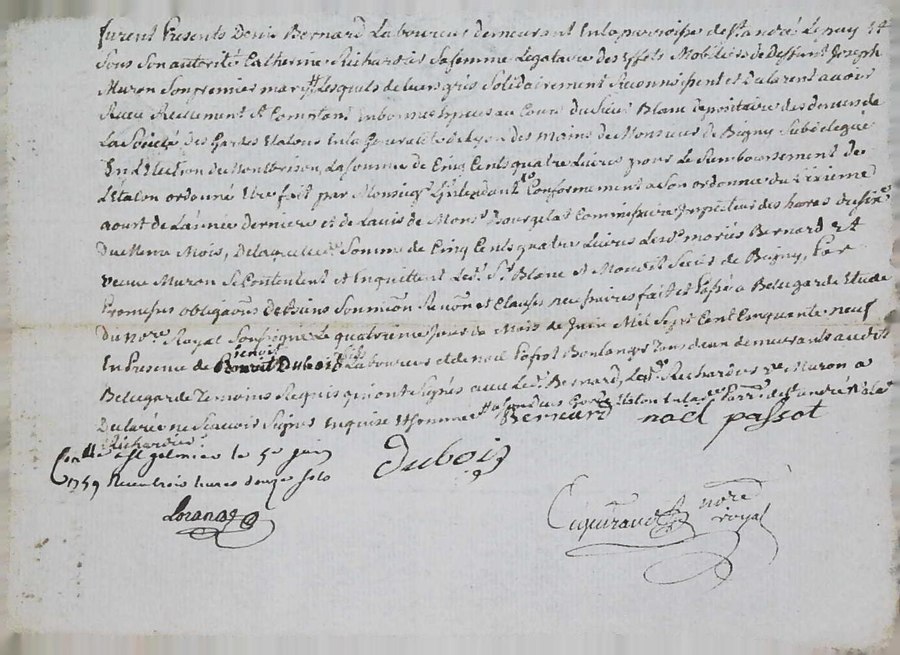 furent Presents Denis Bernard Laboureur demeurant En la parroisse de st andré Le puy Et
Sous Son autorité Catherine Richardier Sa femme Legataire des Effets Mobiliers de Deffunt Joseph
Muron Son premier mary Lesquels de leur grés Solidairement Reconnoissent et Declarent avoir
Receu Reellement et Comptant En bonnes Especes au Cours du Sieur Blanc Depositaire des deniers de
La Société des Gardes Etalons En la Generalité de Lyon des mains de Monsieur de Bigny Subdelegué
En L'Election de Montbrison La Somme de Cinq Cents quatre Livres pour Le Remboursement de
L'Etalon ordonné Etre fait par Monseigr L'Intendant Conformement a Son ordonnce du
aoust de L'année derniere et de L'avis de Monsr Bourgelat Commissaire Inspecteur des haras du
du Meme Mois, De laquelle Somme de Cinq Cents quatre Livres Lesd. mariés Bernard Et
veuve Muron Se Contentent et En quittent Led. Sr Blanc et Mondit Sieur de Bigny, Par
Promesses obligaons Depens Soumiōn Renōn et Clauses necessaires fait et Passé a Bellegarde Etude
du Nore Royal Soussigné Le quatrieme Jour du Mois de Juin Mil Sept Cent Cinquante neuf
En Presence de benoit Dubois Laboureur et de noel Passot Boulanger Tous deux demeurants audit
Bellegarde Temoins Requis qui ont Signés avec Led. Bernard, Lad. Richardier ve Muron a
Declaré ne Scavoir Signer Enquise Et Sommée
Richardier.
Bernard noel passot
Conllé a st galmier le 5e juin
1759 Receu trois livres douze sols
dubois
Ciqueraud nore
royal